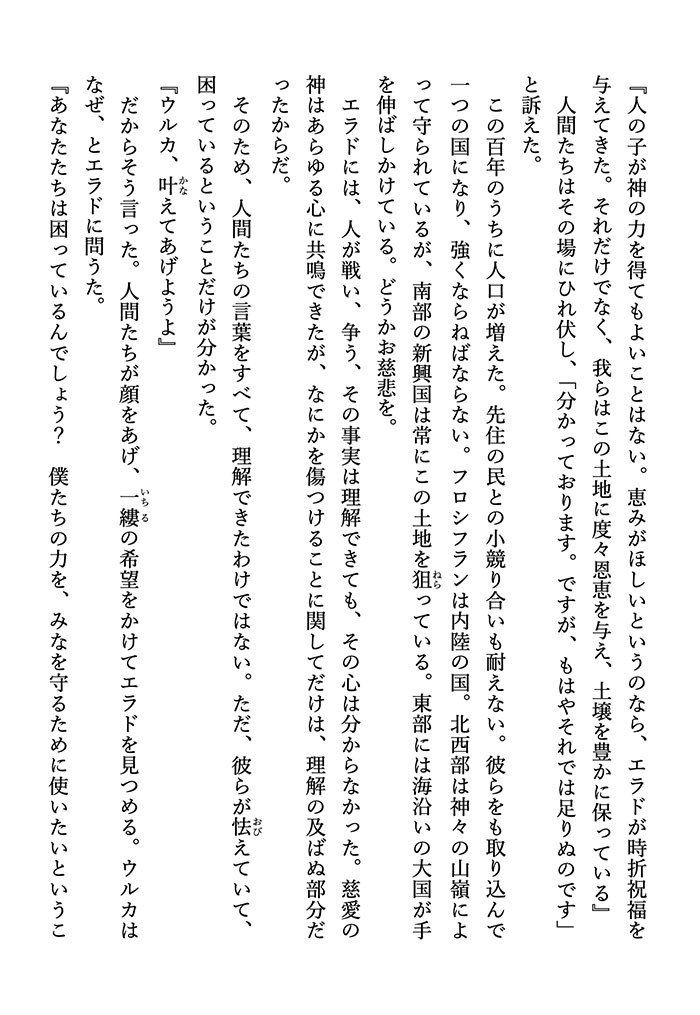 『人の子が神の力を得てもよいことはない。恵みがほしいというのなら、エラドが時折祝福を
与えてきた。それだけでなく、我らはこの土地に度々恩恵を与え、土壌を豊かに保っている』
　人間たちはその場にひれ伏し、「分かっております。ですが、もはやそれでは足りぬのです」
と訴えた。
　この百年のうちに人口が増えた。先住の民との小競り合いも耐えない。彼らをも取り込んで
一つの国になり、強くならねばならない。フロシフランは内陸の国。北西部は神々の山嶺によ
って守られているが、南部の新興国は常にこの土地を狙っている。東部には海沿いの大国が手
を伸ばしかけている。どうかお慈悲を。
　エラドには、人が戦い、争う、その事実は理解できても、その心は分からなかった。慈愛の
神はあらゆる心に共鳴できたが、なにかを傷つけることに関してだけは、理解の及ばぬ部分だ
ったからだ。
　そのため、人間たちの言葉をすべて、理解できたわけではない。ただ、彼らが怯えていて、
困っているということだけが分かった。
『ウルカ、叶えてあげようよ』
　だからそう言った。人間たちが顔をあげ、一縷の希望をかけてエラドを見つめる。ウルカは
なぜ、とエラドに問うた。
『あなたたちは困っているんでしょう？　僕たちの力を、みなを守るために使いたいというこ